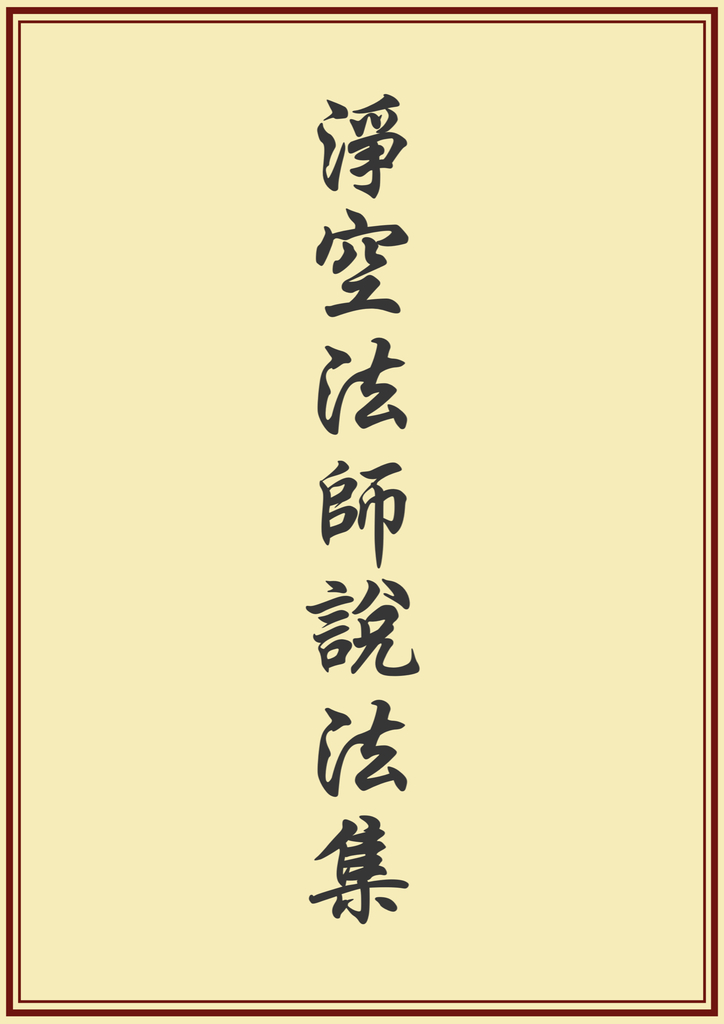 淨空法師說法集